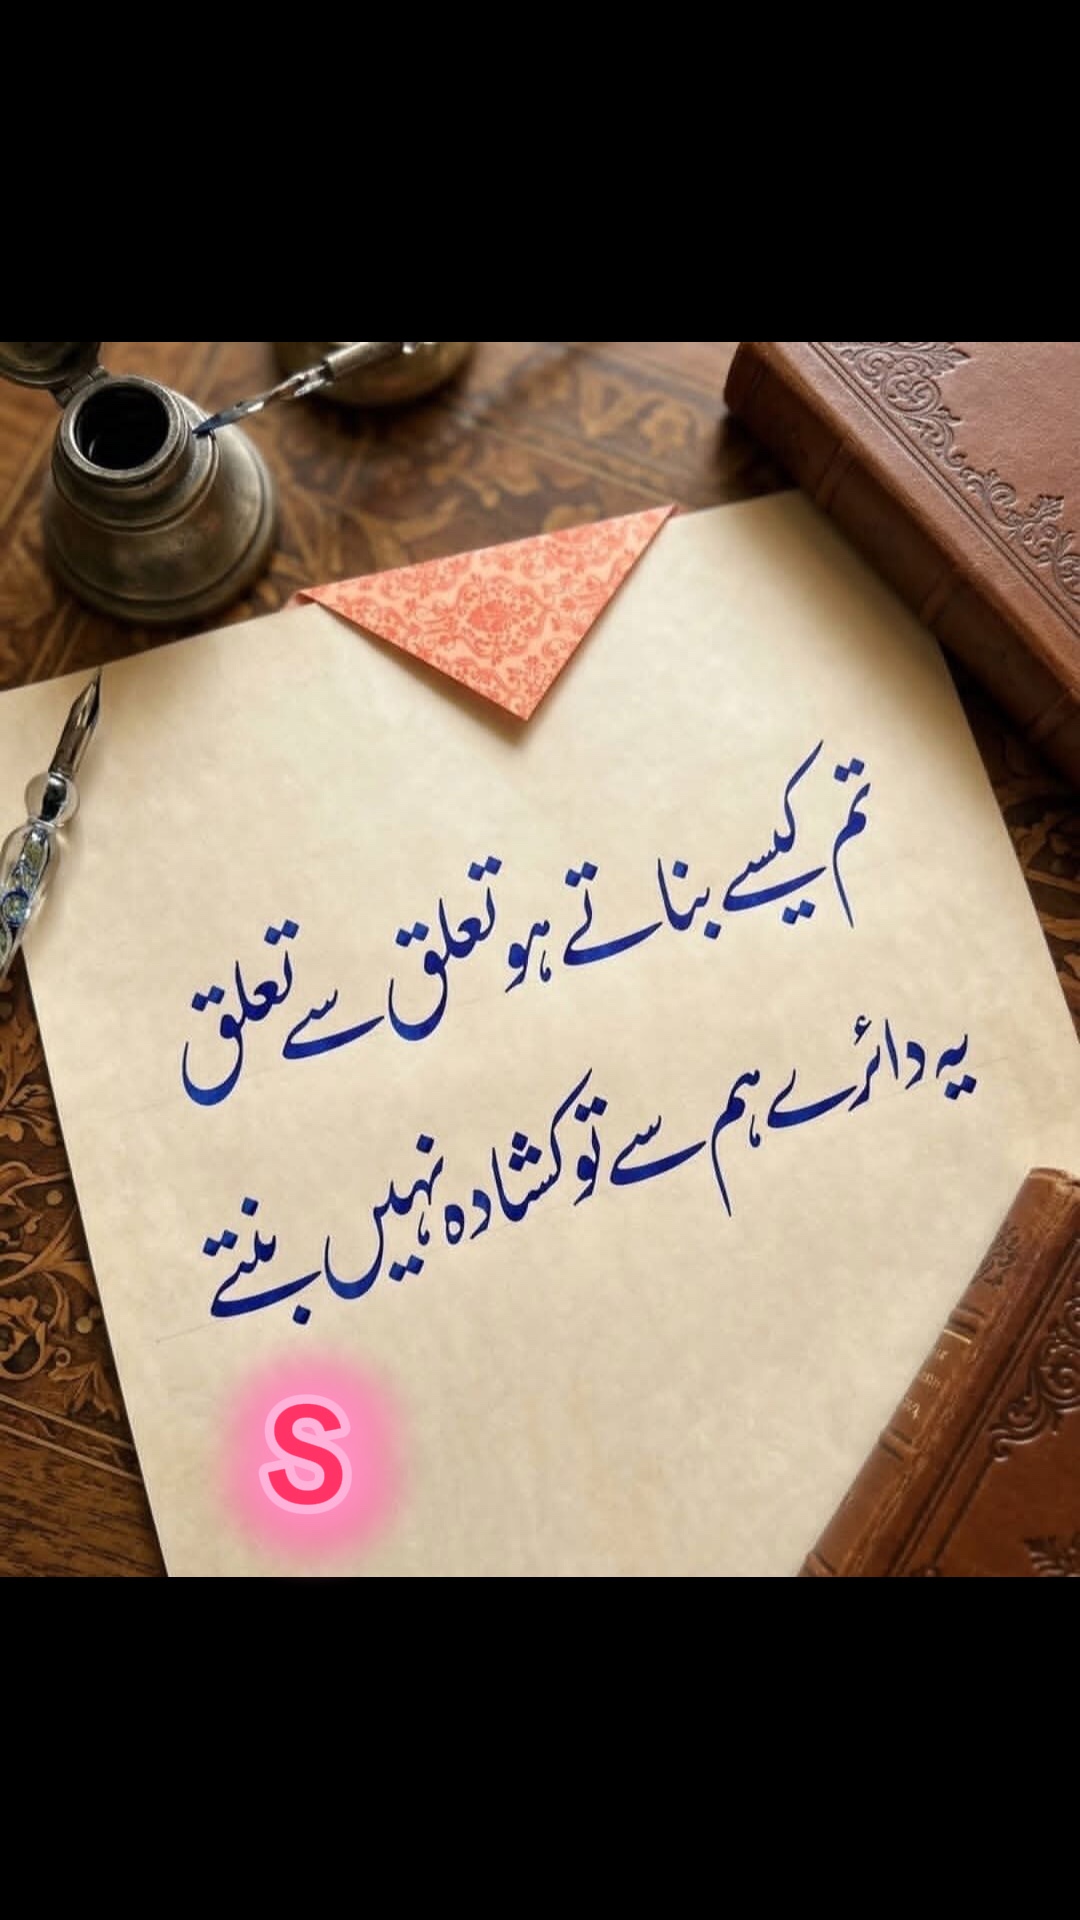 تم کیسے بناتے ہو تعلق سے تعلق
یہ دائرے ہم سے تو کشادہ نہیں بنتے
S